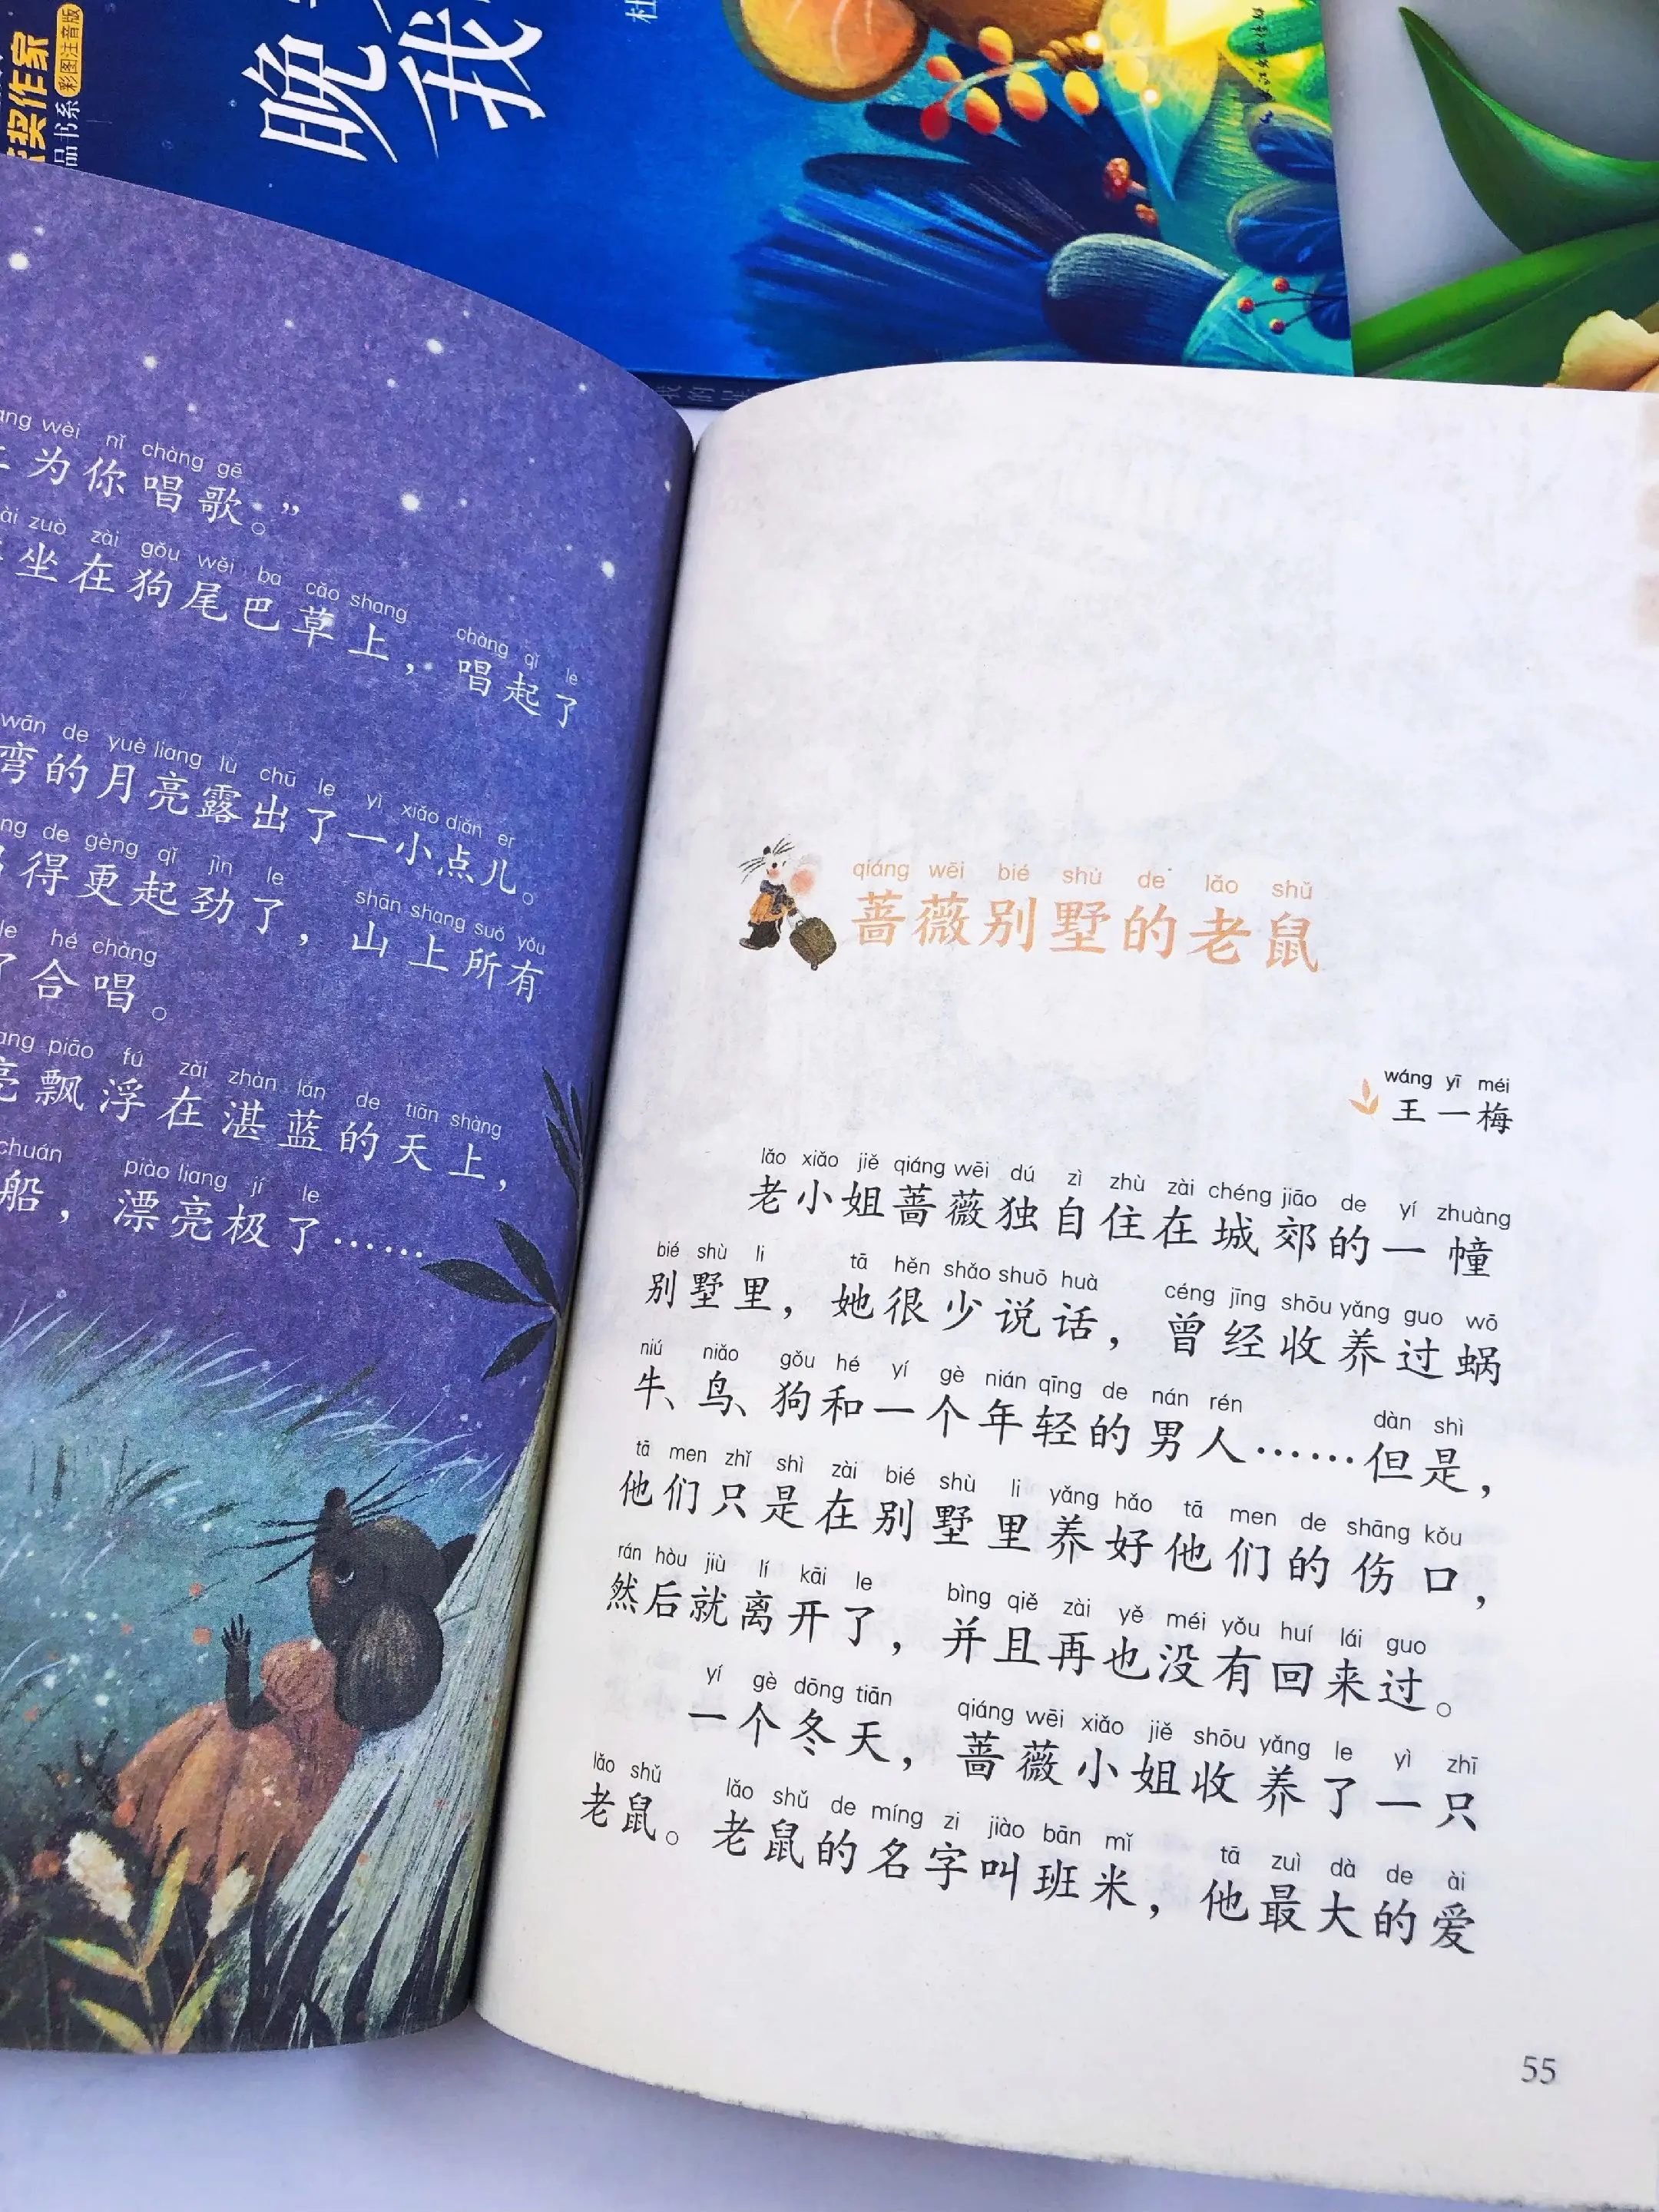 奖作家
品书系
彩图注音版
晚
我
杜
ang wèi nǐ chàng gē
为你唱歌。”
zuò zài gǒu wěi ba cǎo shang chàng qǐ le
坐在狗尾巴草上，唱起了
wān de yuè liang lù chū le yì xiǎo diǎn er
弯的月亮露出了一小点儿。
de gèng qǐ jìn le shān shang suó yǒu
得更起劲了，山上所有
le hé chàng
了合唱。
piāo fú zài zhàn lán de tiān shàng
亮飘浮在湛蓝的天上，
chuán piào liang jí le
船，漂亮极了……
qiáng wēi bié shù de lǎo shǔ
蔷薇别墅的老鼠
wáng yī méi
王一梅
lǎo xiǎo jiě qiáng wēi dú zì zhù zài chéng jiāo de yí zhuàng
老小姐蔷薇独自住在城郊的一幢
bié shù li tā hěn shǎo shuō huà céng jīng shōu yǎng guo wō
别墅里，她很少说话，曾经收养过蜗
niú niǎo gǒu hé yí gè nián qīng de nán rén dàn shì
牛、鸟、狗和一个年轻的男人……但是，
tā men zhǐ shì zài bié shù li yǎng hǎo tā men de shāng kǒu
他们只是在别墅里养好他们的伤口，
rán hòu jiù lí kāi le bìng qiě zài yě méi yǒu huí lái guo
然后就离开了，并且再也没有回来过。
yí gè dōng tiān qiáng wēi xiǎo jiě shōu yǎng le yì zhī
一个冬天，蔷薇小姐收养了一只
lǎo shǔ lǎo shǔ de míng zi jiào bān mǐ tā zuì dà de ài
老鼠。老鼠的名字叫班米，他最大的爱
55